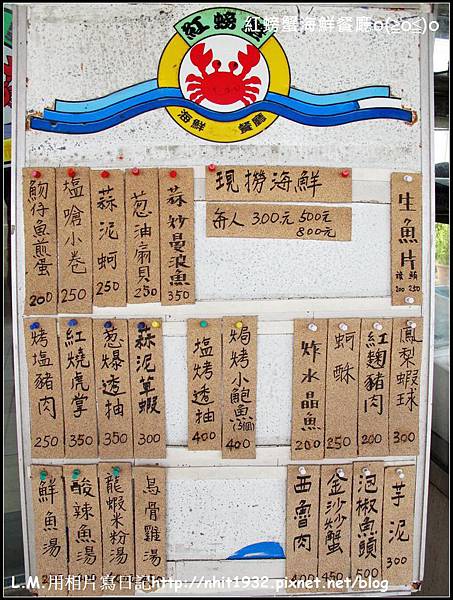 紅螃蟹海鮮餐廳o(≧o≦)o
紅螃蟹
海鮮 餐廳
現撈海鮮
每人 300元 500元
800元
魩仔魚煎蛋 200
塩嗆小卷 250
蒜泥蚵 250
葱油扇貝 250
蒜炒曼波魚 350
生魚片
200 250
烤塩豬肉 250
紅燒虎掌 350
葱爆透抽 350
蒜泥草蝦 300
塩烤透抽 400
焗烤小鮑魚(3個) 400
炸水晶魚 200
蚵酥 250
紅麴豬肉 200
鳳梨蝦球 300
鮮魚湯
酸辣魚湯
龍蝦米粉湯
烏骨雞湯
西魯肉
金沙炒蟹
泡椒魚頭
芋泥 300
L.M.用相片寫日記http://nhit1932.pixnet.net/blog